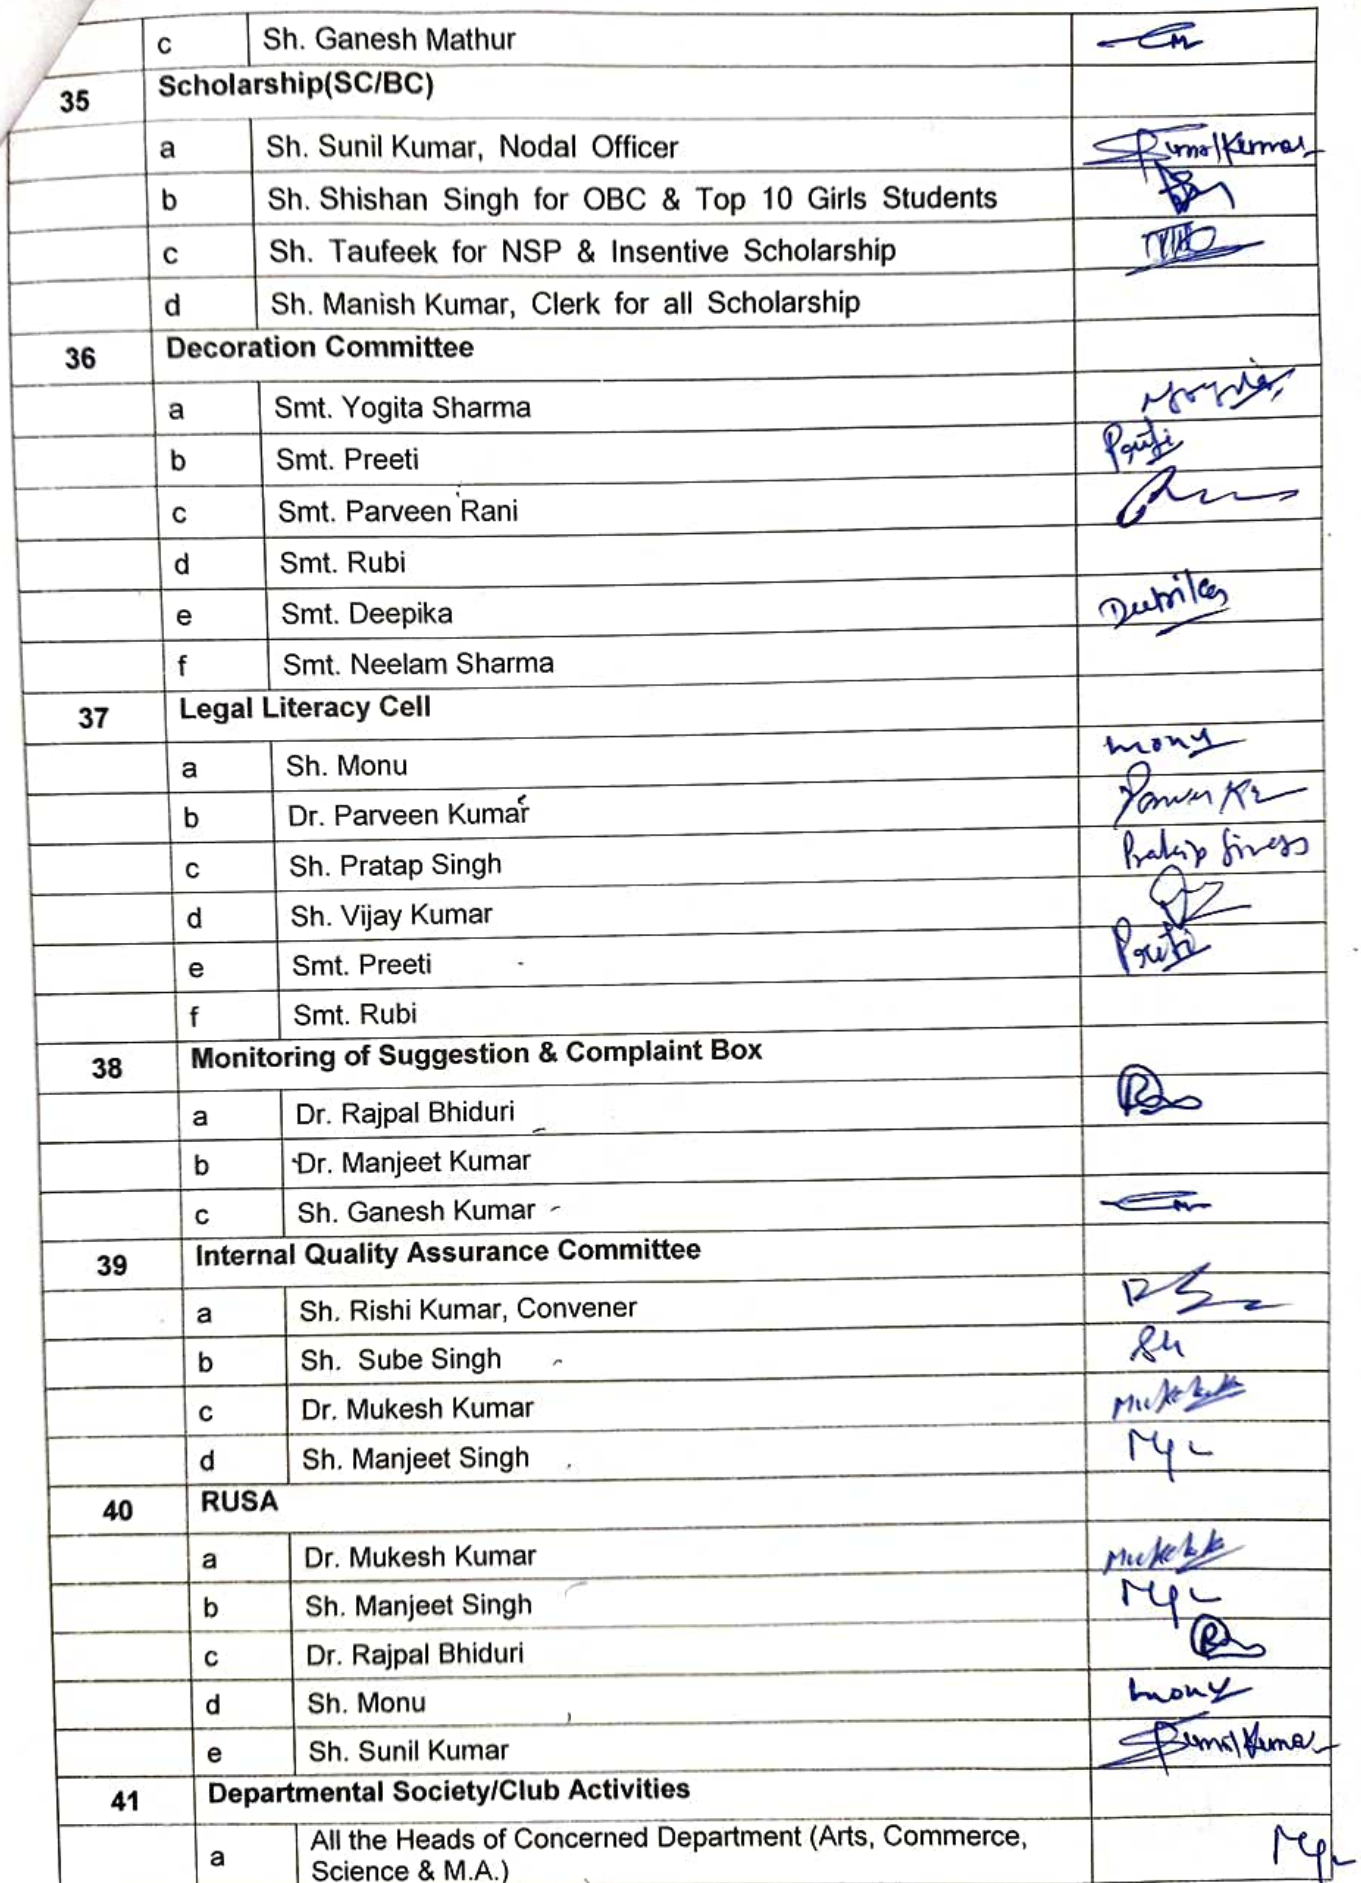 c Sh. Ganesh Mathur
35 Scholarship(SC/BC)
a Sh. Sunil Kumar, Nodal Officer Sunil Kumar
b Sh. Shishan Singh for OBC & Top 10 Girls Students
c Sh. Taufeek for NSP & Insentive Scholarship
d Sh. Manish Kumar, Clerk for all Scholarship
36 Decoration Committee
a Smt. Yogita Sharma
b Smt. Preeti Preeti
c Smt. Parveen Rani
d Smt. Rubi
e Smt. Deepika Deepika
f Smt. Neelam Sharma
37 Legal Literacy Cell
a Sh. Monu Monu
b Dr. Parveen Kumar
c Sh. Pratap Singh Pratap Singh
d Sh. Vijay Kumar
e Smt. Preeti Preeti
f Smt. Rubi
38 Monitoring of Suggestion & Complaint Box
a Dr. Rajpal Bhiduri
b Dr. Manjeet Kumar
c Sh. Ganesh Kumar
39 Internal Quality Assurance Committee
a Sh. Rishi Kumar, Convener
b Sh. Sube Singh
c Dr. Mukesh Kumar
d Sh. Manjeet Singh
40 RUSA
a Dr. Mukesh Kumar
b Sh. Manjeet Singh
c Dr. Rajpal Bhiduri
d Sh. Monu Monu
e Sh. Sunil Kumar Sunil Kumar
41 Departmental Society/Club Activities
a All the Heads of Concerned Department (Arts, Commerce,
Science & M.A.)